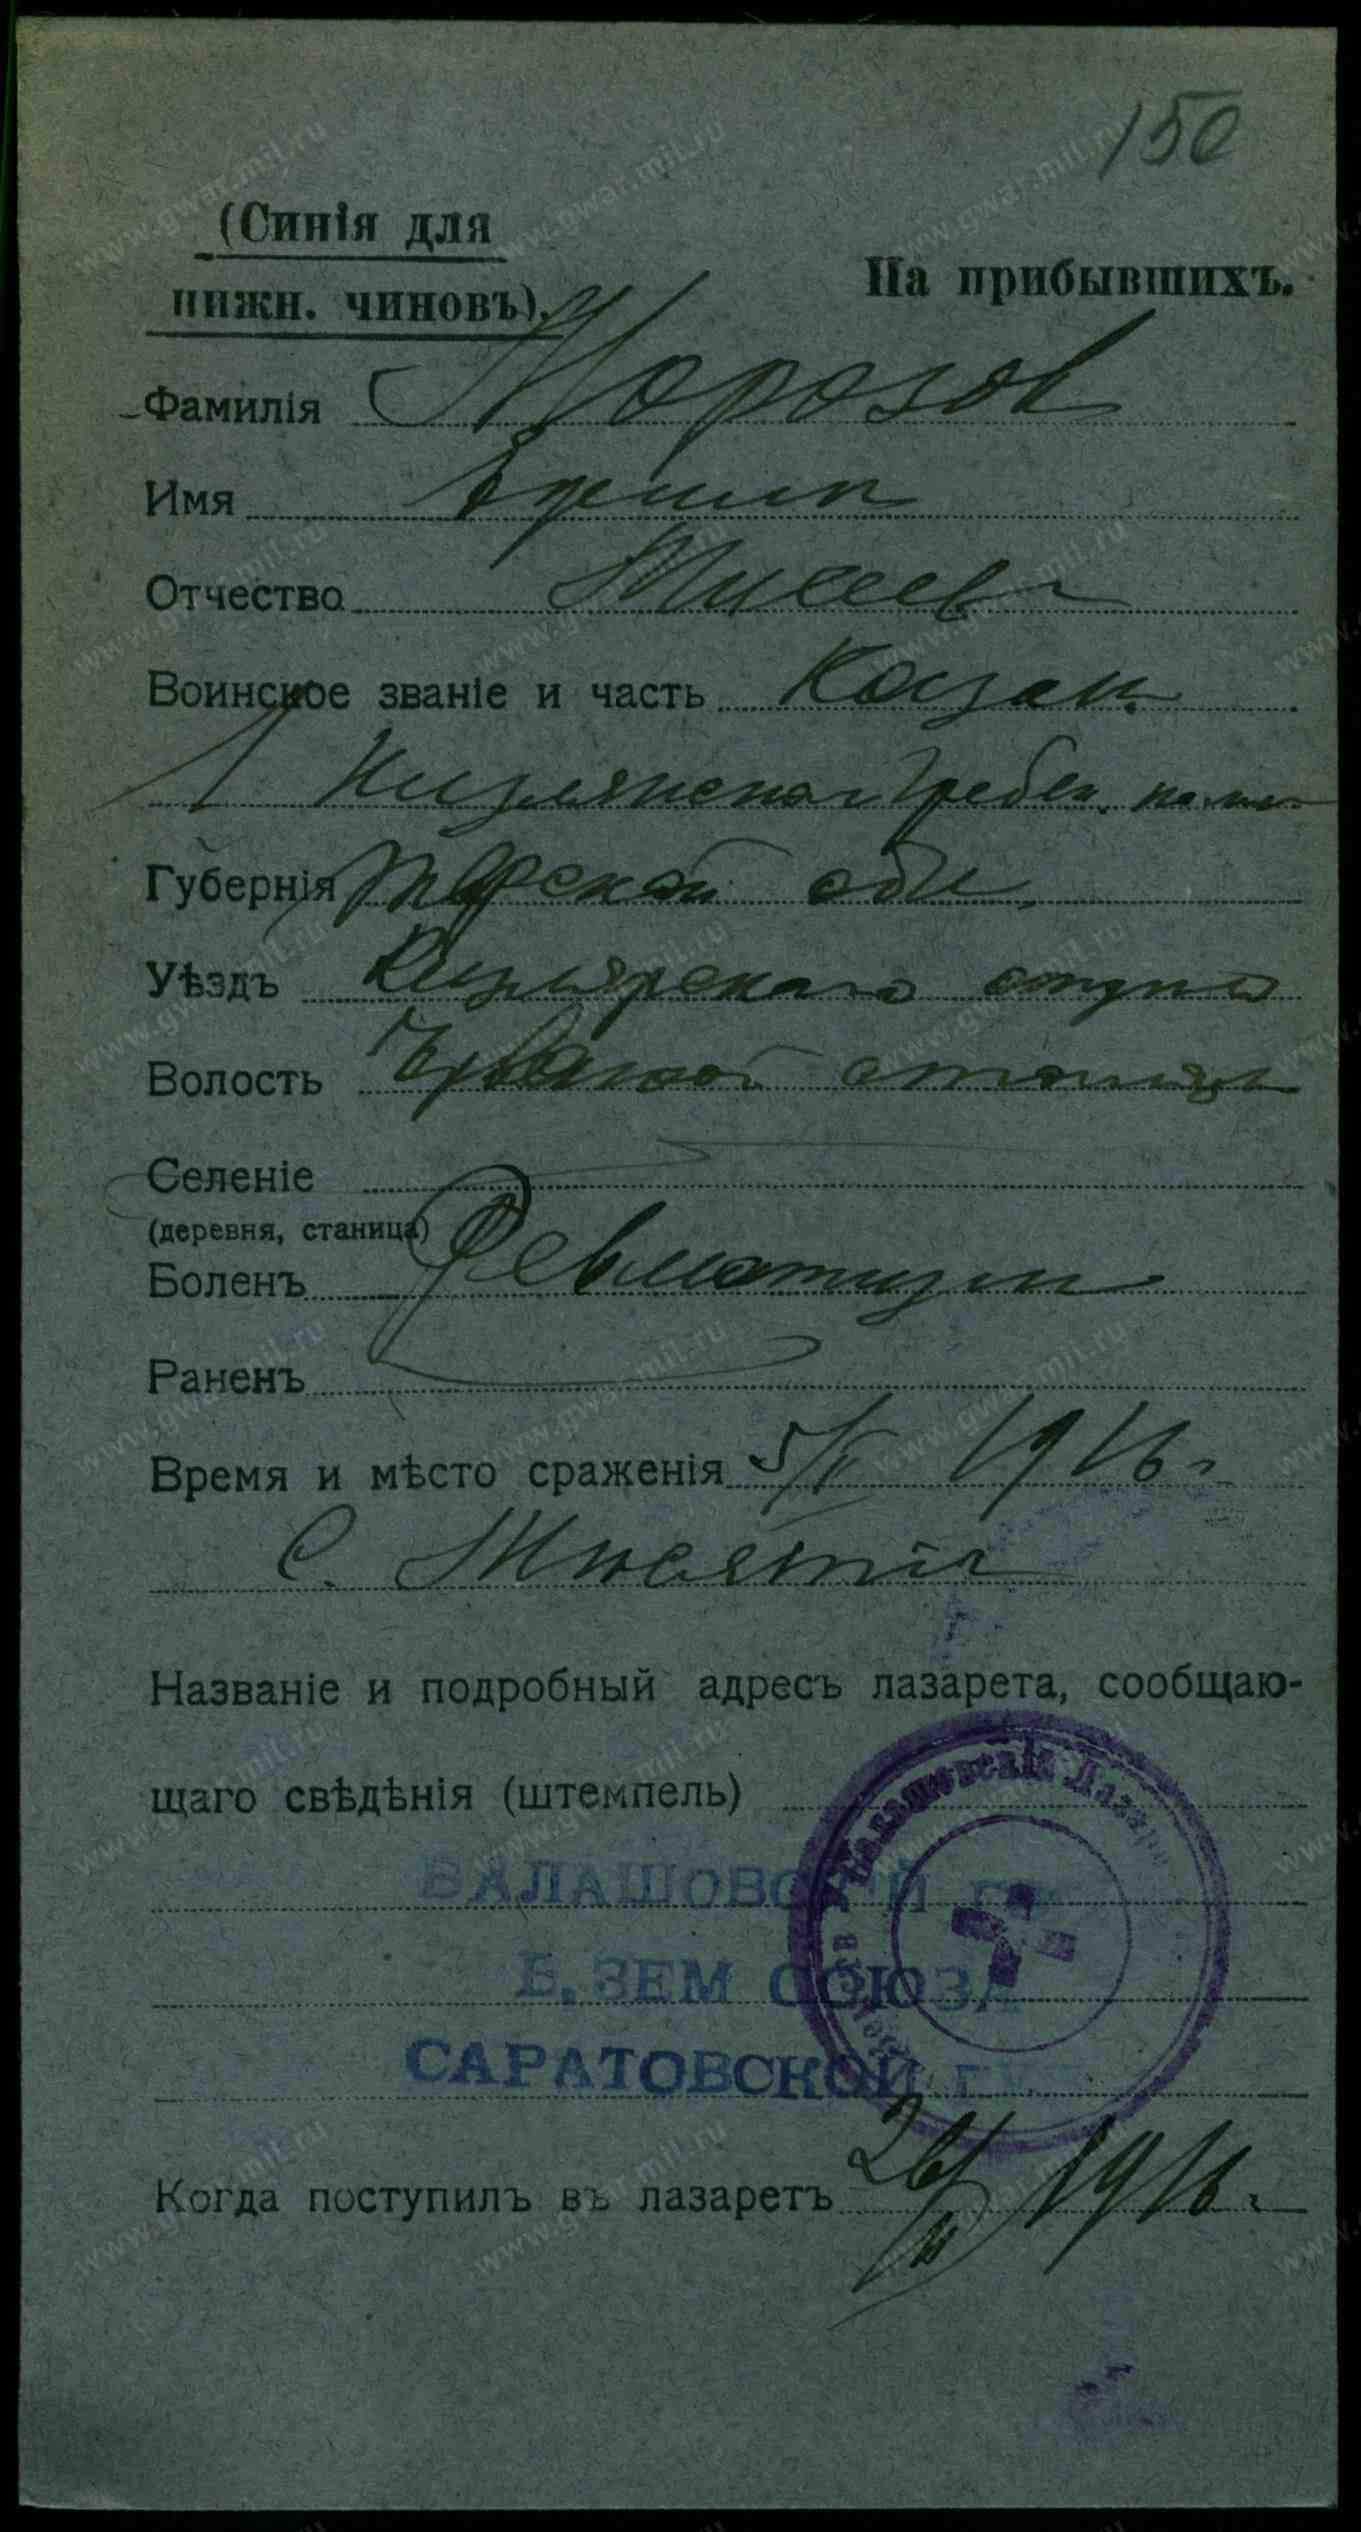 150
(Синія для
нижн. чиновъ).
На прибывшихъ.
Фамилія Морозов
Имя
Отчество Михеев
Воинское званіе и часть Козак
Гребен. полк
Губернія Терской обл.
Уѣздъ Кизлярскаго отдела
Волость станицы
Селеніе
(деревня, станица)
Боленъ Ревматизм
Раненъ
Время и мѣсто сраженія 5/II 1916 г
С.
Названіе и подробный адресъ лазарета, сообщаю-
щаго свѣдѣнія (штемпель)
БАЛАШОВСКІЙ
В. ЗЕМ СОЮЗА
САРАТОВСКОЙ ГУ
Балашовскій Лазар
Когда поступилъ въ лазаретъ 26/II 1916 г.
www.gwar.mil.ru